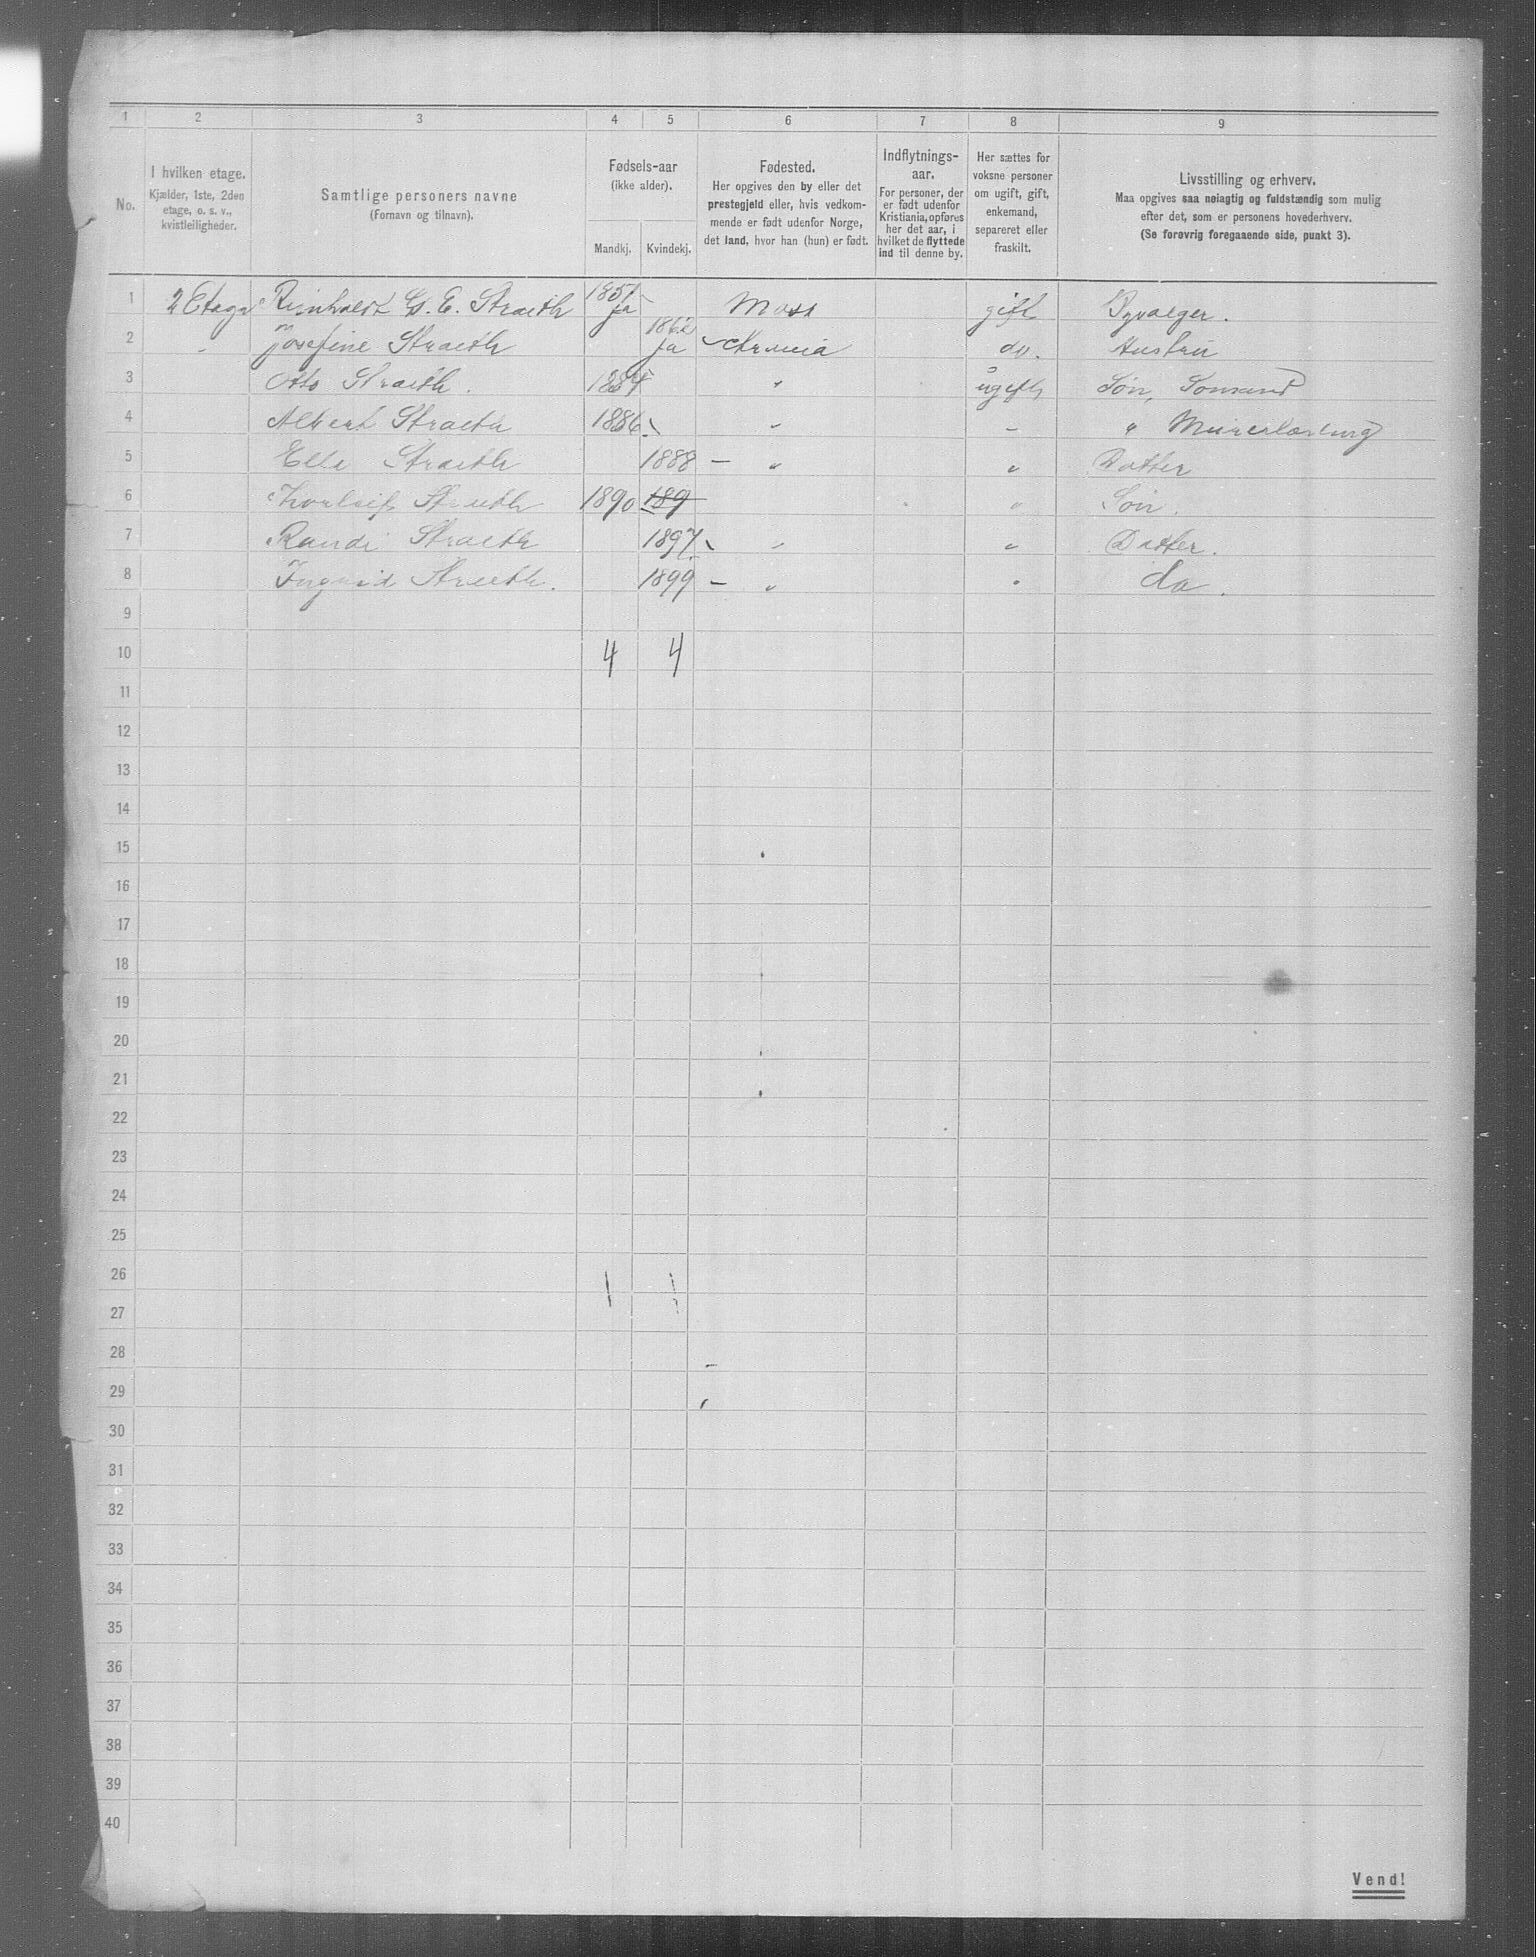 1 2 3 4 5 6 7 8 9
No.
I hvilken etage.
Kjælder, 1ste, 2den
etage, o. s. v.,
kvistleiligheder.
Samtlige personers navne
(Fornavn og tilnavn).
Fødsels-aar
(ikke alder).
Mandkj. Kvindekj.
Fødested.
Her opgives den by eller det
prestegjeld eller, hvis vedkom-
mende er født udenfor Norge,
det land, hvor han (hun) er født.
Indflytnings-
aar.
For personer, der
er født udenfor
Kristiania, opføres
her det aar, i
hvilket de flyttede
ind til denne by.
Her sættes for
voksne personer
om ugift, gift,
enkemand,
separeret eller
fraskilt.
Livsstilling og erhverv.
Maa opgives saa nøiagtig og fuldstændig som mulig
efter det, som er personens hovederhverv.
(Se forøvrig foregaaende side, punkt 3).
1 2 Etage G. E. Straeth 1851 ja Moss gift
2 Josefine Straeth 1862 ja do. Hustru
3 Otto Straeth. 1884 " ugift Søn,
4 Albert Straeth 1886 " - " Murerlærling
5 Straeth 1888 - " " Datter
6 Thorleif Straeth 1890 189 " Søn.
7 Randi Straeth 1897 " " Datter.
8 Straeth. 1899 - " " do.
9
10 4 4
11
12
13
14
15
16
17
18
19
20
21
22
23
24
25
26
27
28
29
30
31
32
33
34
35
36
37
38
39
40
Vend!